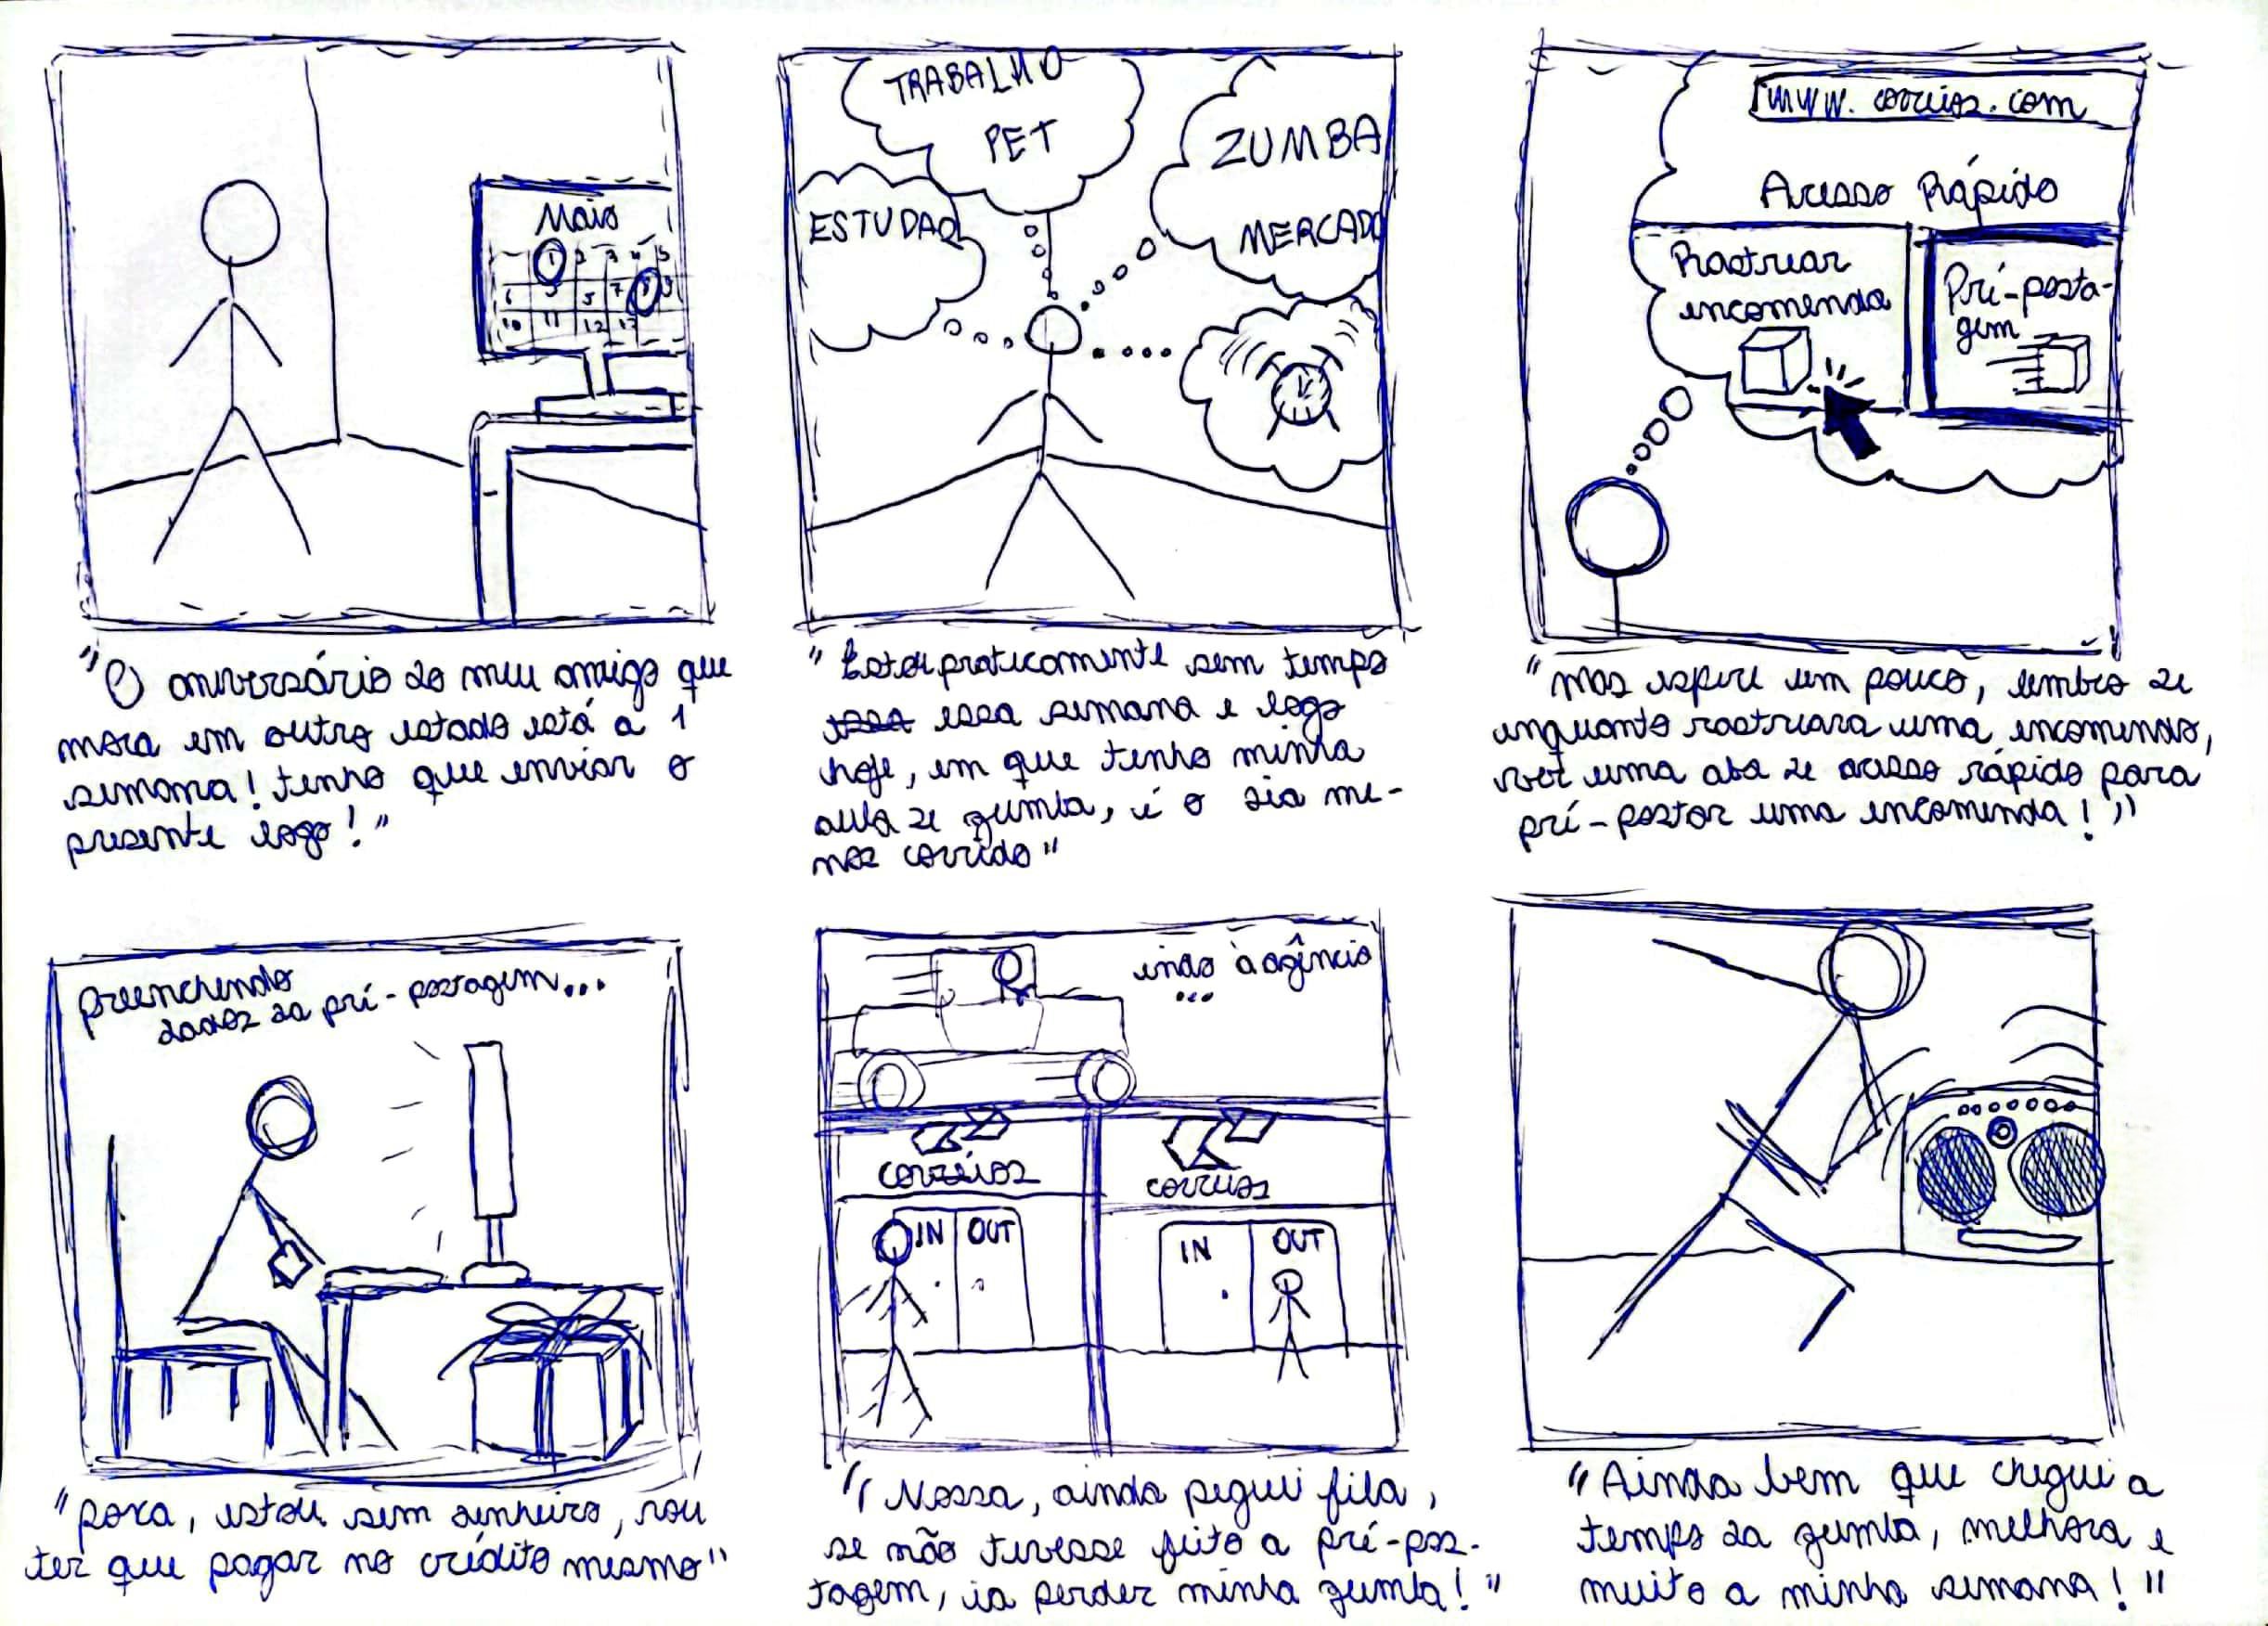 Maio
1 2 3 4 5
10 11 12 13
"O aniversário do meu amigo que
mora em outro estado está a 1
semana! tenho que enviar o
presente logo!"
TRABALHO
PET
ZUMBA
MERCADO
ESTUDAR
"Estou praticamente sem tempo
essa semana e logo
hoje, em que tenho minha
aula de zumba, é o dia me-
nos corrido"
www.correios.com
Acesso Rápido
Rastrear
encomenda
Pré-posta-
gem
"mas espere um pouco, lembro de
enquanto rastreara uma encomenda,
ver uma aba de acesso rápido para
pré-postar uma encomenda!"
preenchendo
dados da pré-postagem...
"poxa, estou sem dinheiro, vou
ter que pagar no crédito mesmo"
indo à agência
...
correios
IN OUT
correios
IN OUT
"Nossa, ainda peguei fila,
se não tivesse feito a pré-pos-
tagem, ia perder minha zumba!"
"Ainda bem que cheguei a
tempo da zumba, melhora e
muito a minha semana!"